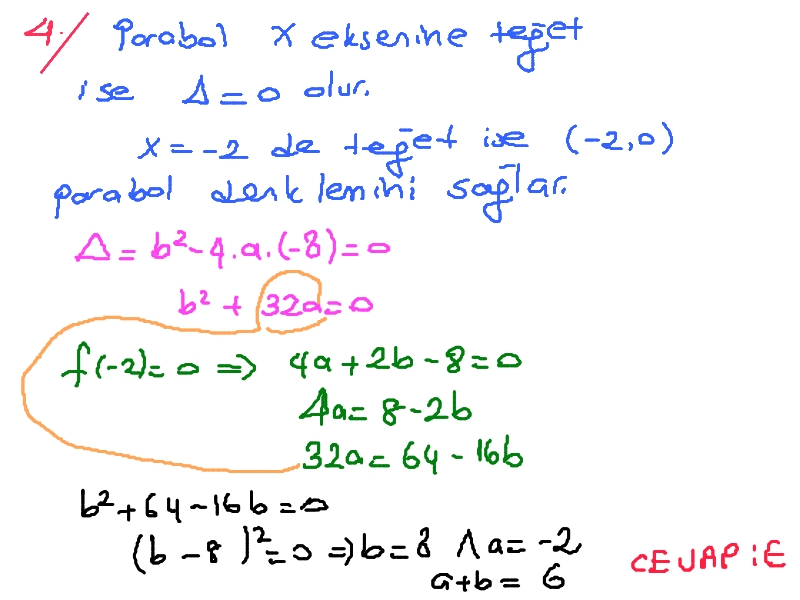 4/ Parabol x eksenine teğet
ise Δ=0 olur.
x=-2 de teğet ise (-2,0)
parabol denklemini sağlar.
Δ=b²-4.a.(-8)=0
b²+32a=0
f(-2)=0 ⇒ 4a+2b-8=0
4a=8-2b
32a=64-16b
b²+64-16b=0
(b-8)²=0 ⇒b=8 ∧ a=-2
a+b=6
CEVAP:E